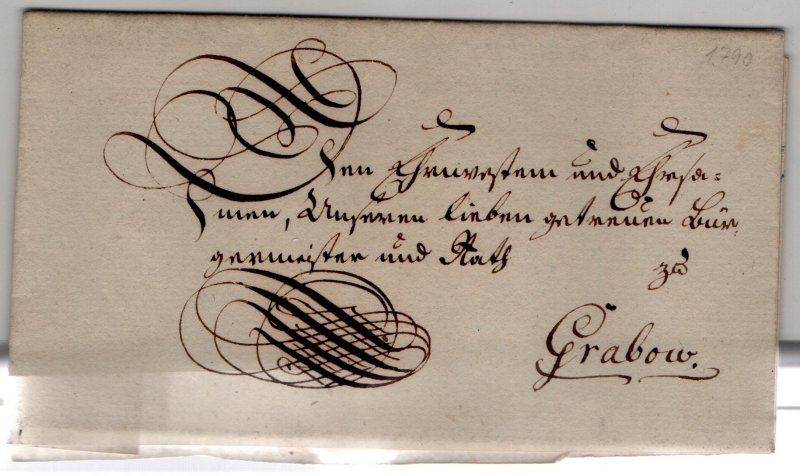 1790
Den Ehrnvestem und Ehrsa=
men, Unseren lieben getreuen Bür-
germeister und Rath
zu
Grabow.